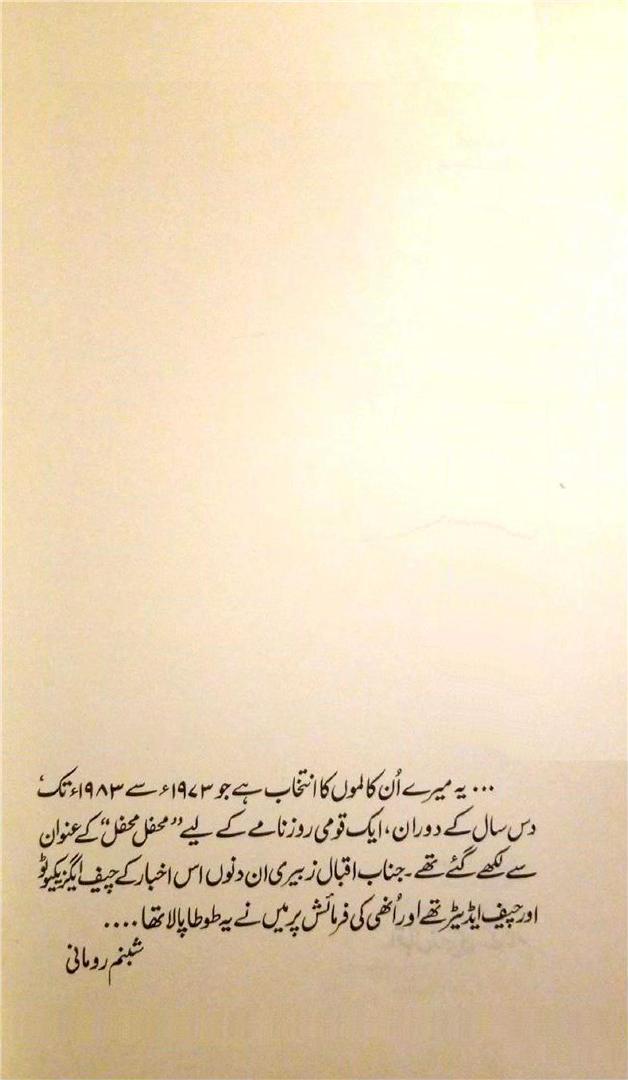 ... یہ میرے اُن کالموں کا انتخاب ہے جو ۱۹۷۳ء سے ۱۹۸۳ء تک،
دس سال کے دوران، ایک قومی روزنامے کے لیے "محفل محفل" کے عنوان
سے لکھے گئے تھے۔ جناب اقبال زبیری ان دنوں اس اخبار کے چیف ایگزیکیوٹو
اور چیف ایڈیٹر تھے اور اُنھی کی فرمائش پر میں نے یہ طوطا پالا تھا ....
شبنم رومانی